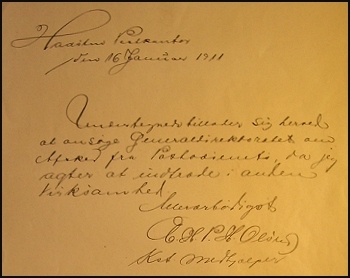 Postkontor
den 16 Januar 1911
Undertegnede tillader sig herved
at ansøge Generaldirektoratet om
Afsked fra Postvæsenet, da jeg
agter at indtræde i anden
Virksomhed
Ærværbødigst
E. H. P. H. Olsen
Kst. Medhjælper